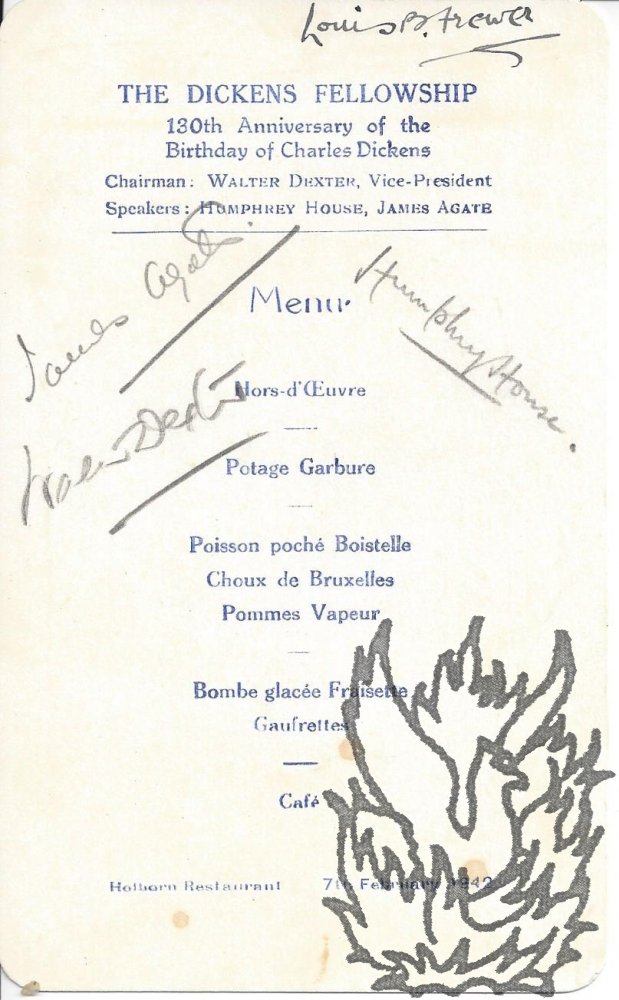 Louis B. Frewer
THE DICKENS FELLOWSHIP
130th Anniversary of the
Birthday of Charles Dickens
Chairman: WALTER DEXTER, Vice-President
Speakers: HUMPHREY HOUSE, JAMES AGATE
James Agate.
Humphry House.
Menu
Walter Dexter
Hors-d'Œuvre
Potage Garbure
Poisson poché Boistelle
Choux de Bruxelles
Pommes Vapeur
Bombe glacée Fraisette
Gaufrettes
Café
Holborn Restaurant 7th February 1942